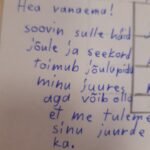 Hea vanaema!
soovin sulle häid
jõule ja seekord
toimub jõulupidu
minu juures
aga võib olla
et me tuleme
sinu juurde
ka.